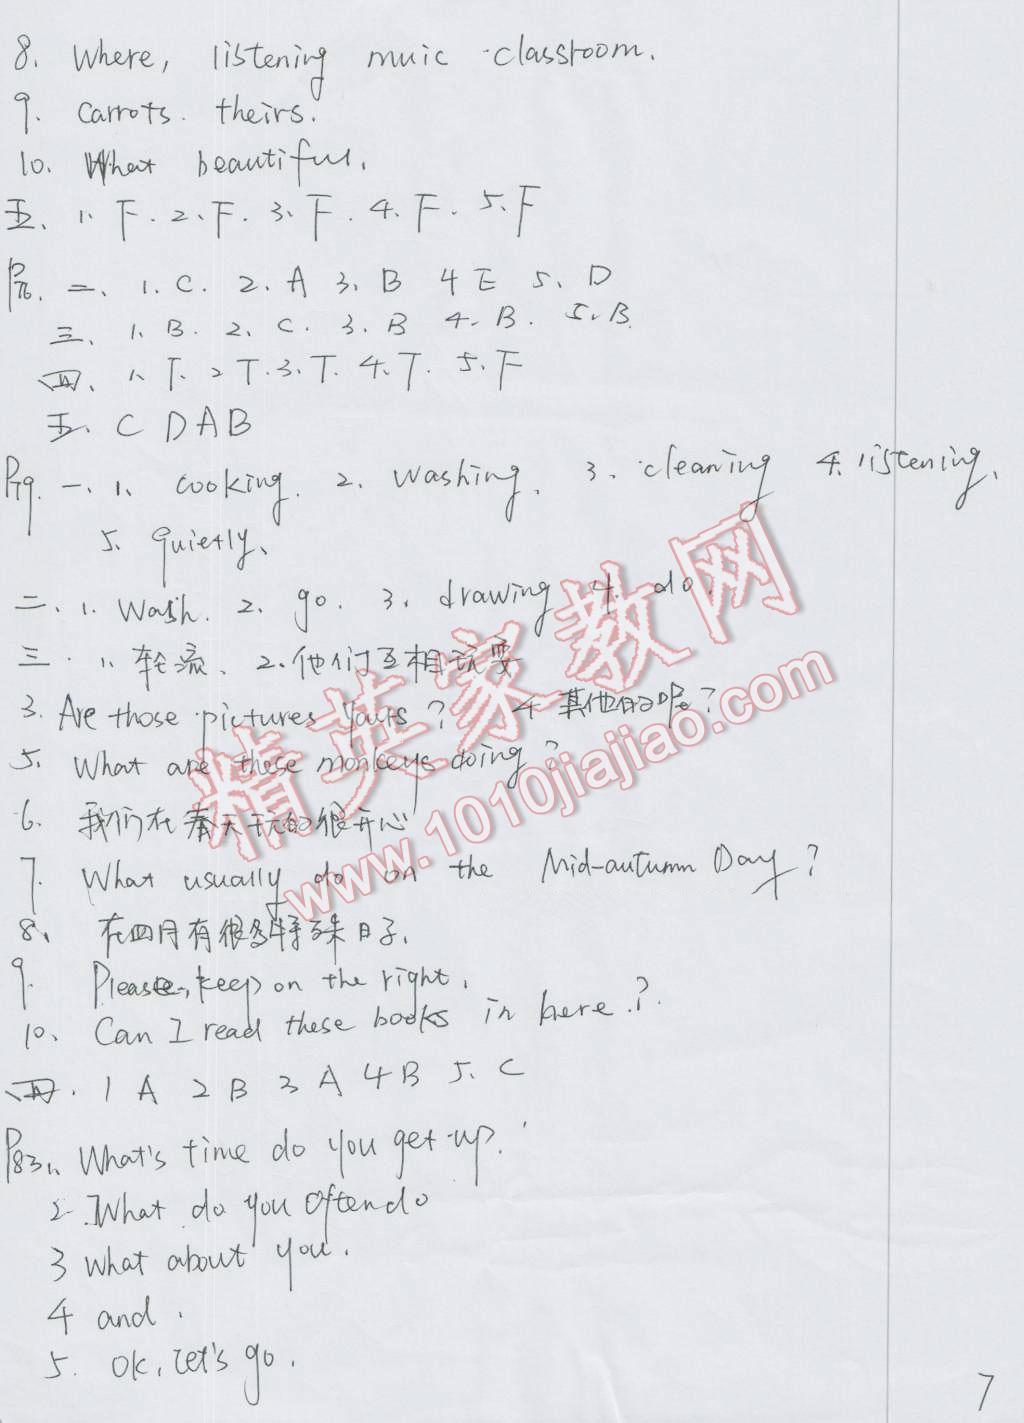 8. Where, listening muic classroom.
9. carrots. theirs.
10. What beautiful.
五、1、F. 2、F. 3、F. 4、F. 5、F
P76. 二、1. C. 2、A 3、B 4 E 5、D
三、1、B. 2、C. 3、B 4、B. 5、B.
四、1、F. 2 T. 3、T. 4、T. 5、F
五、C D A B
P79. 一、1、cooking. 2、washing. 3、cleaning 4. listening.
5、quietly、
二、1. Wash. 2、go. 3、drawing 4. do.
三、1、轮流、2、他们互相玩耍
3. Are those pictures yours? 4 其他的呢?
5、What are these monkeys doing?
6. 我们在春天玩的很开心
7. What usually do on the Mid-autumn Day?
8、在四月有很多特殊日子.
9. Please, keep on the right.
10、Can I read these books in here?
四. 1 A 2 B 3 A 4 B 5、C
P83 1、What's time do you get up?
2. What do you often do
3 what about you.
4 and.
5. OK, let's go.
7
精英家教网
www.1010jiajiao.com